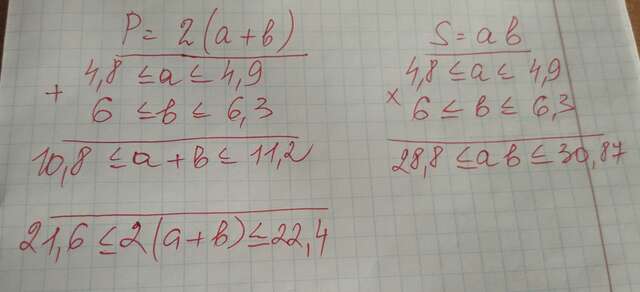 P = 2(a+b)
4,8 ≤ a ≤ 4,9
+
6 ≤ b ≤ 6,3
10,8 ≤ a+b ≤ 11,2
21,6 ≤ 2(a+b) ≤ 22,4
S = ab
4,8 ≤ a ≤ 4,9
×
6 ≤ b ≤ 6,3
28,8 ≤ ab ≤ 30,87